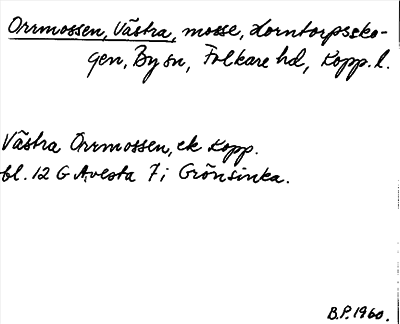 Orrmossen, Västra, mosse, Horntorpssko-
gen, By sn, Folkare hd, Kopp. l.
Västra Orrmossen, ek Kopp.
bl. 12 G Avesta 7 i Grönsinka.
B.P. 1960.